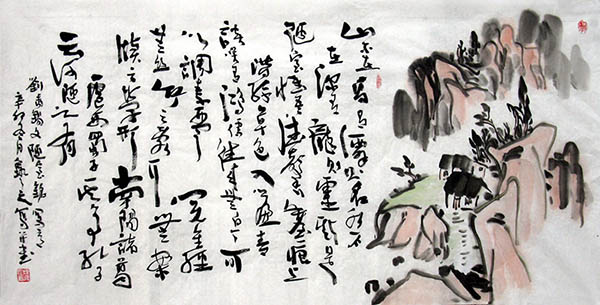 山不在高有僊則名水不
在深有龍則靈斯是
陋室惟吾德馨苔痕上
階綠草色入簾青
談笑有鴻儒往來無白丁可
以調素琴閱金經
無絲竹之亂耳無案
牘之勞形南陽諸葛
廬西蜀子云亭孔子
云何陋之有
劉禹錫文陋室銘
辛卯冬月